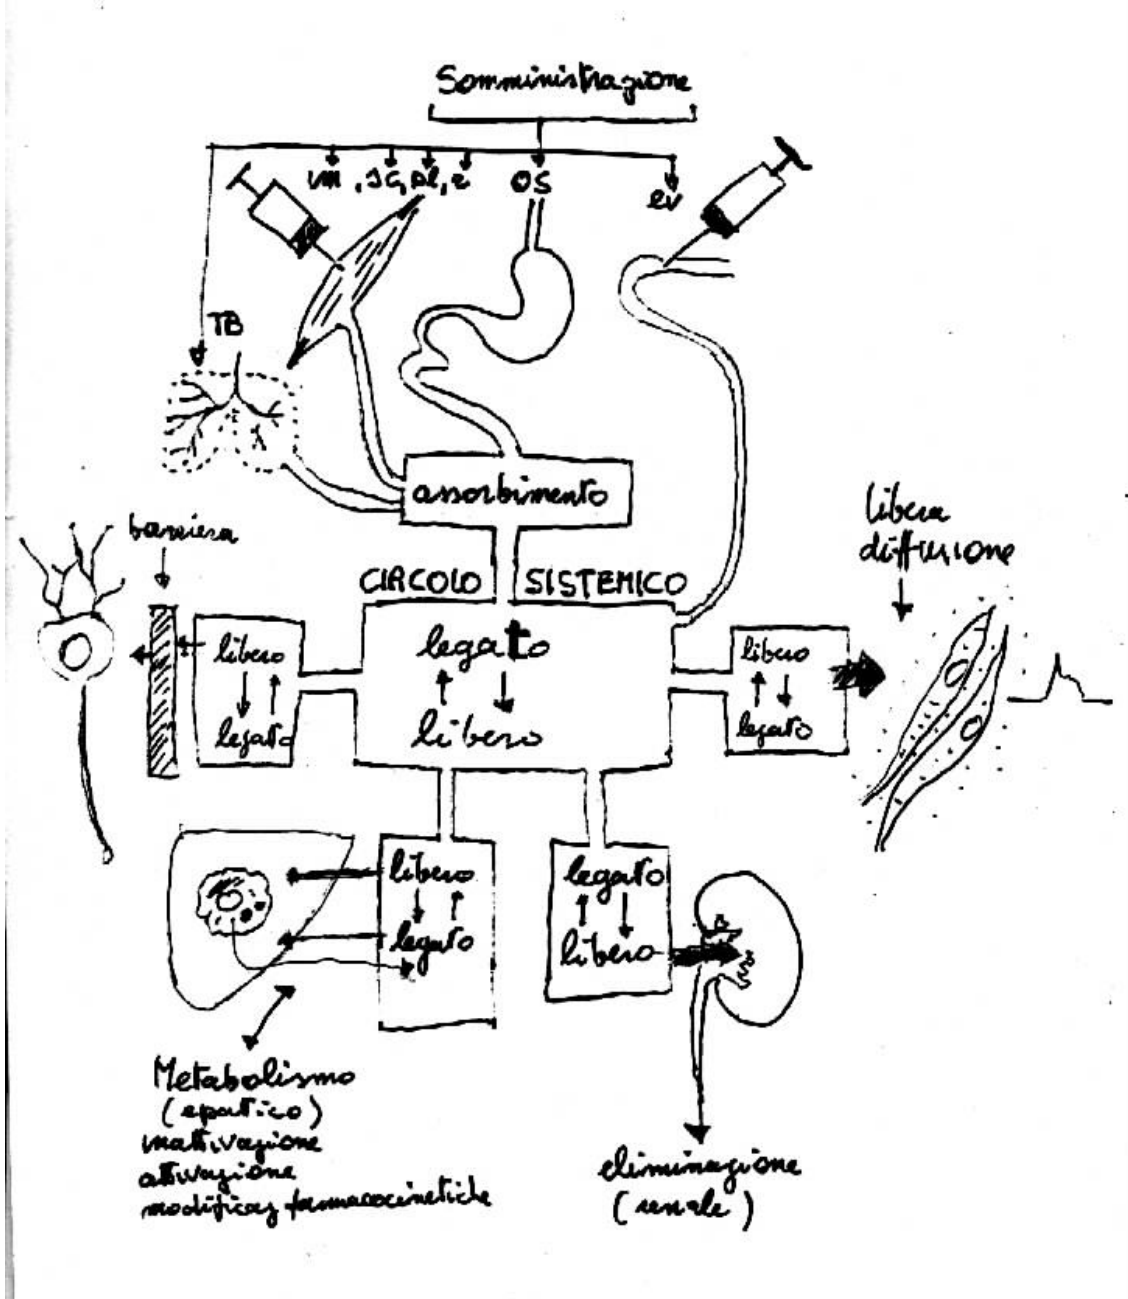 Somministrazione
im, sc, sl, r
os
ev
TB
assorbimento
barriera
libera
diffusione
CIRCOLO SISTEMICO
legato
libero
libero
legato
libero
legato
libero
legato
legato
libero
Metabolismo
(epatico)
inattivazione
attivazione
modificaz farmacocinetiche
eliminazione
(renale)